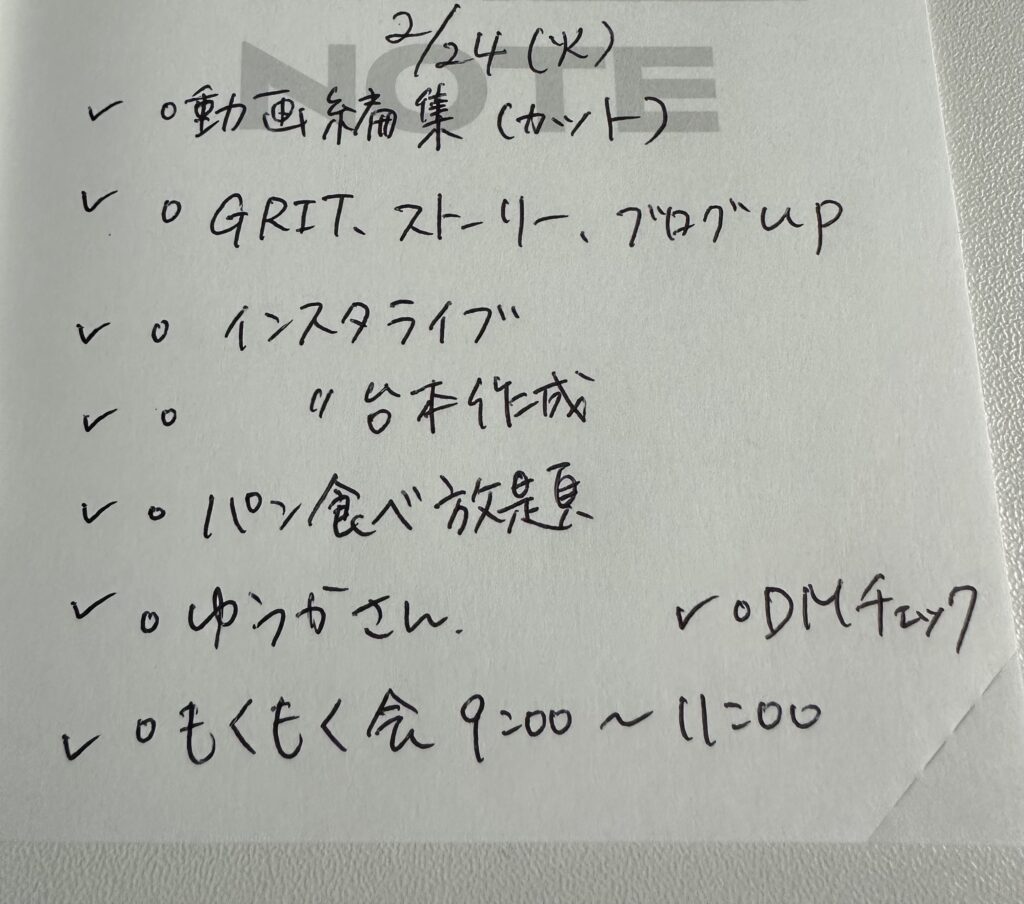 NOTE
2/24(火)
✓ ○動画編集(カット)
✓ ○ GRIT、ストーリー、ブログup
✓ ○ インスタライブ
✓ ○ 〃台本作成
✓ ○ パン食べ放題
✓ ○ ゆうかさん. ✓ ○DMチェック
✓ ○もくもく会 9:00〜11:00